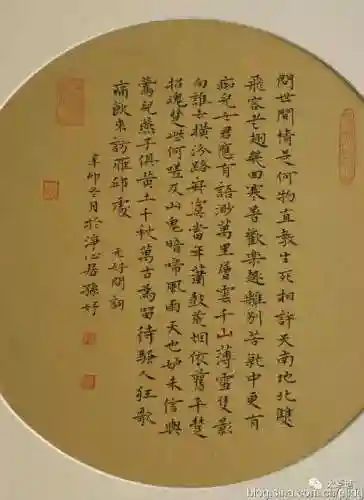 問世間情是何物直教生死相許天南地北雙
飛客老翅幾回寒暑歡樂趣離別苦就中更有
痴兒女君應有語渺萬里層雲千山雪隻影
向誰去橫汾路寂寞當年簫鼓荒烟依舊平楚
招魂楚些何嗟及山鬼暗啼風雨天也妒未信與
鶯兒燕子俱黃土千秋萬古為留待騷人狂歌
痛飲來訪雁邱處 元好問詞
辛卯冬月於淨心居孫妤